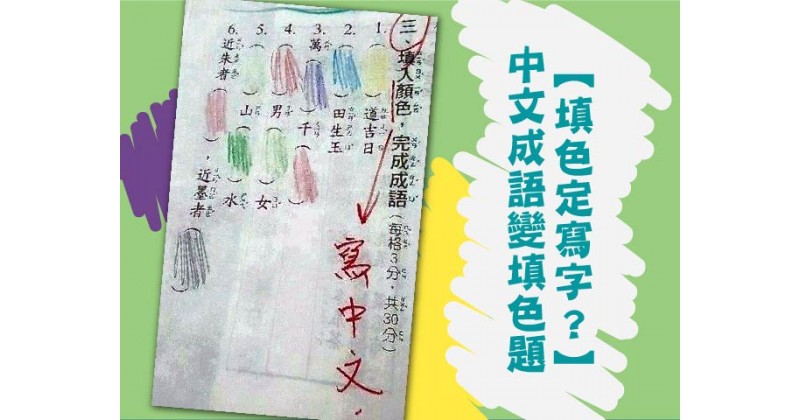 【填色定寫字？】
中文成語變填色題
三、填入顏色，完成成語（每格3分，共30分）
1.（ ）道吉日
2.（ ）田生玉
3. 萬（ ）千（ ）
4.（ ）男（ ）女
5.（ ）山（ ）水
6. 近朱者（ ），近墨者（ ）
寫中文.